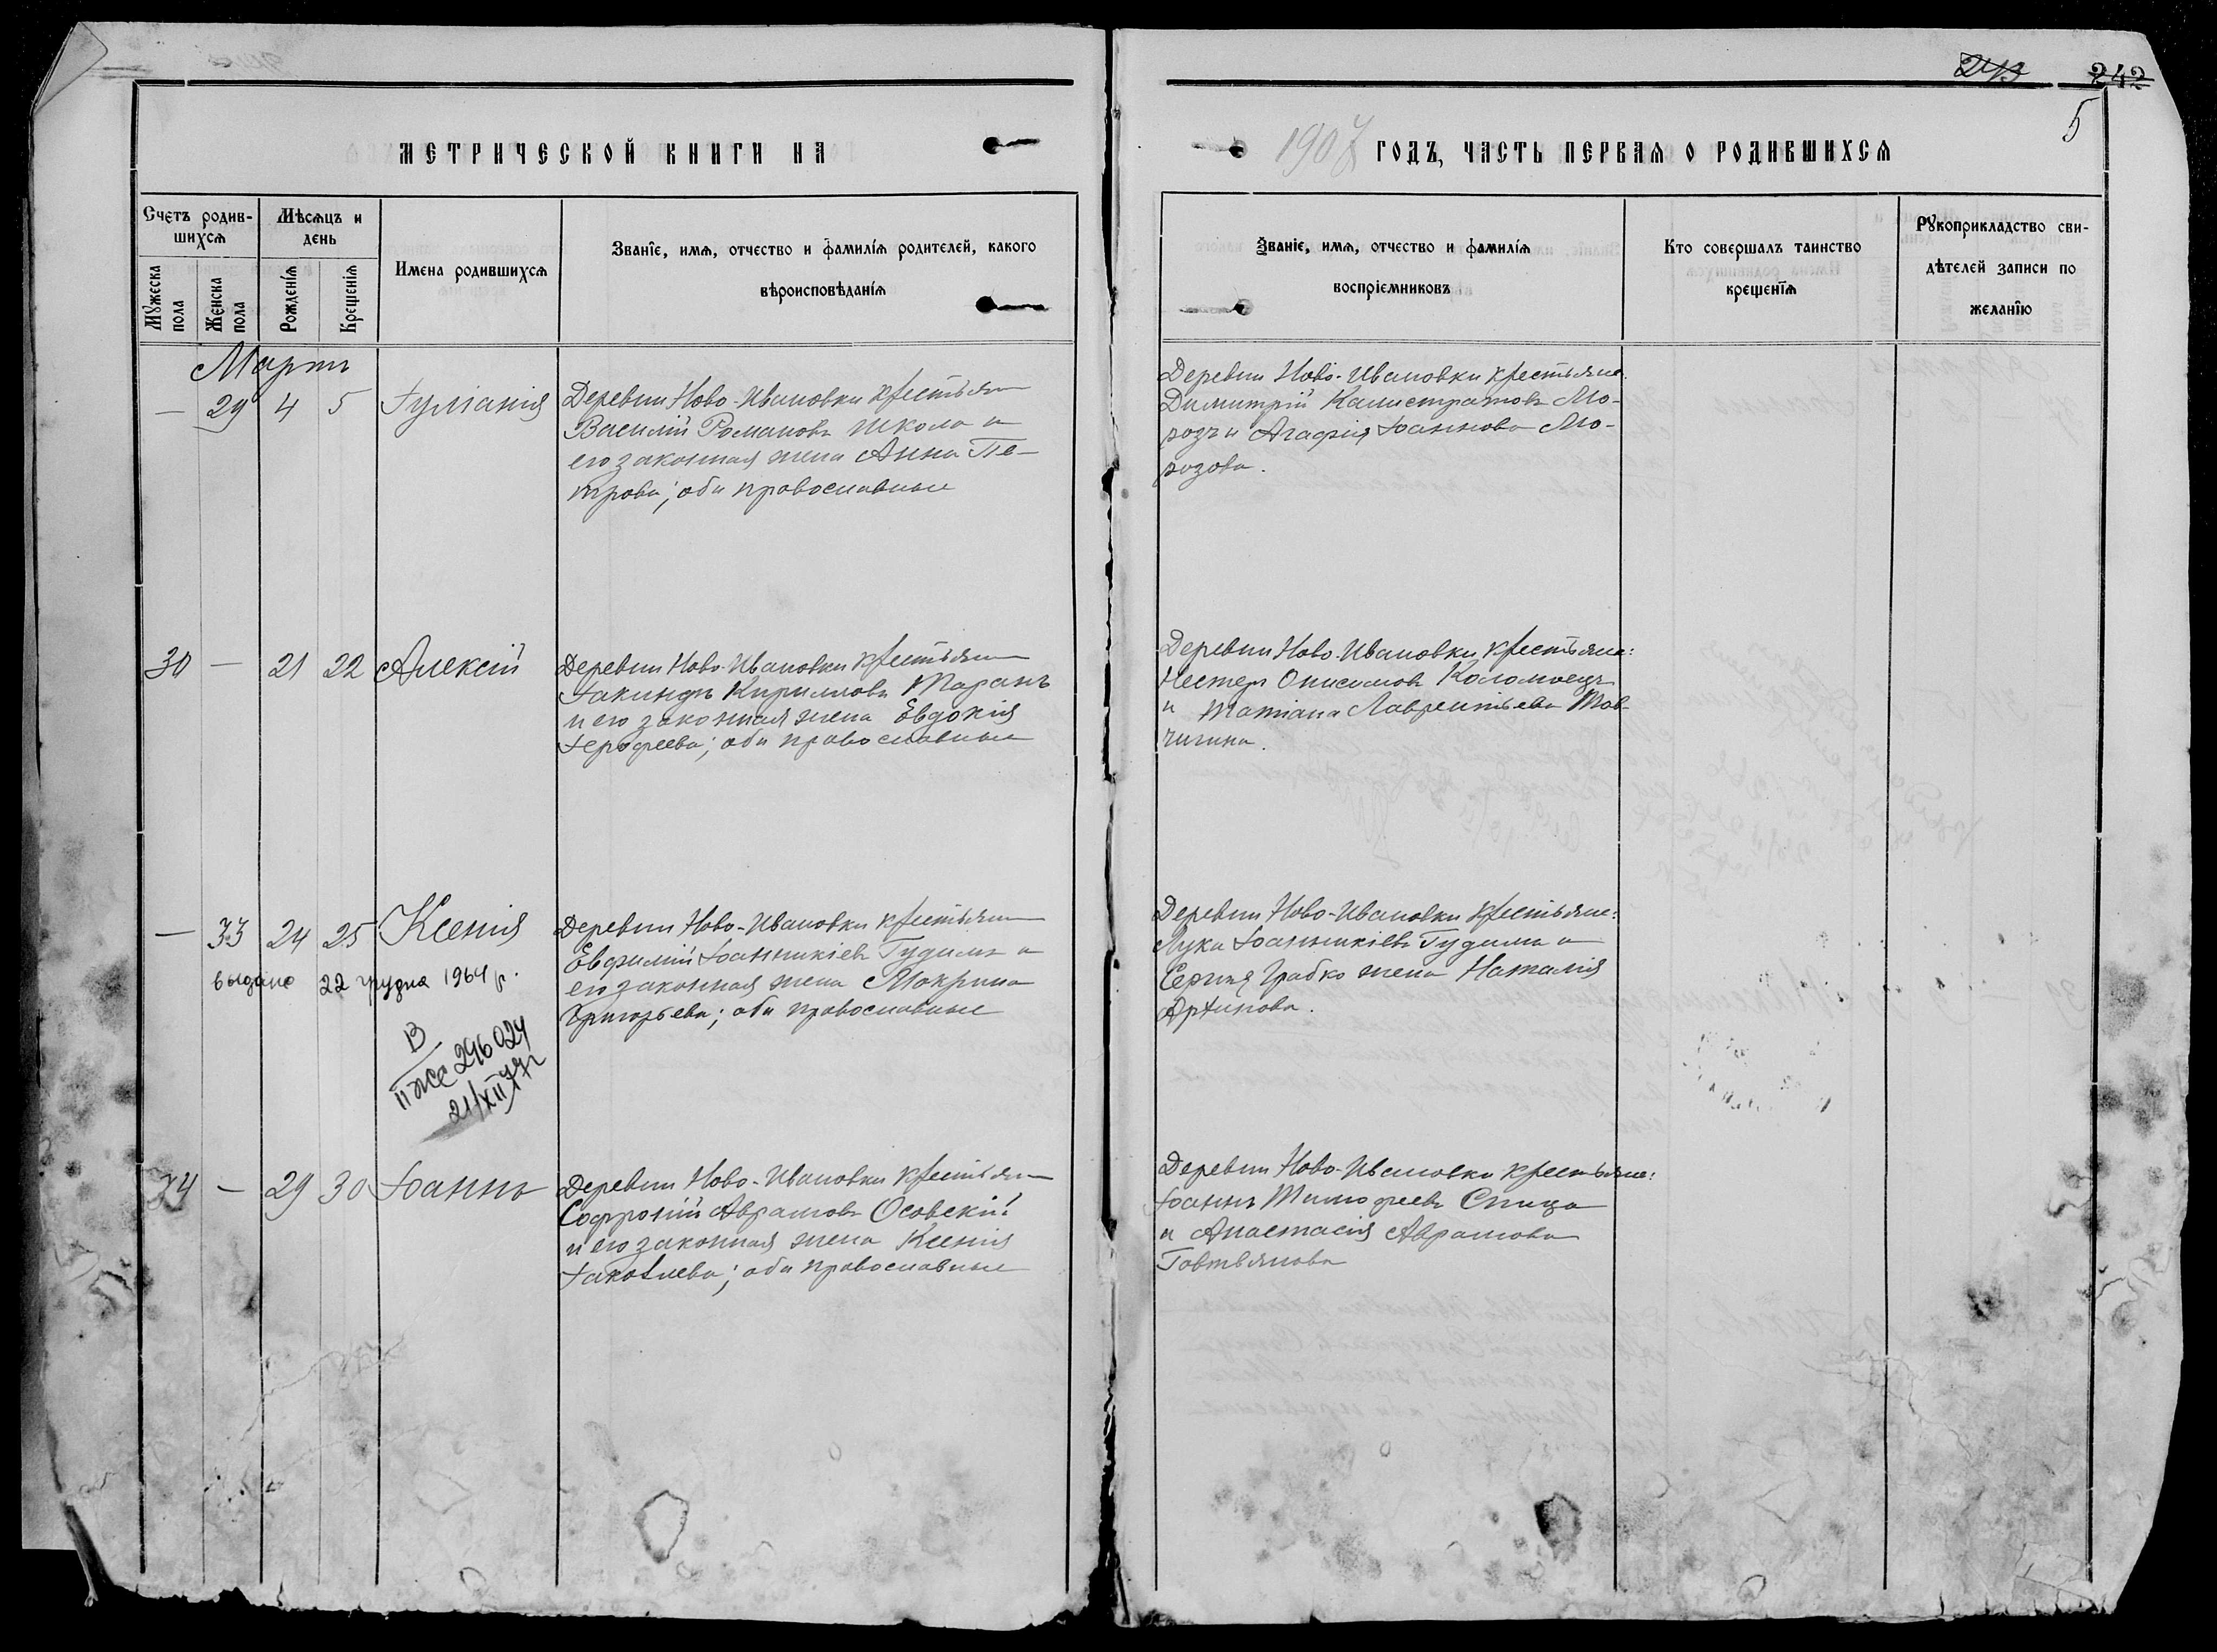 242
5
МЕТРИЧЕСКОЙ КНИГИ НА
1907 ГОДЪ, ЧАСТЬ ПЕРВАЯ О РОДИВШИХСЯ
Счетъ родив-
шихся
Мужеска
пола
Женска
пола
Мѣсяцъ и
день
Рожденія
Крещенія
Имена родившихся
Званіе, имя, отчество и фамилія родителей, какого
вѣроисповѣданія
Званіе, имя, отчество и фамилія
воспріемниковъ
Кто совершалъ таинство
крещенія
Рукоприкладство сви-
дѣтелей записи по
желанію
Мартъ
— 29 4 5 Іуліанія
Деревни Ново-Ивановки крестьян
Василій Романовъ Школа и
его законная жена Анна Пе-
трова; оба православные
Деревни Ново-Ивановки крестьяне
Димитрій Калистратовъ Мо-
розъ и Агафія Іоаннова Мо-
розова.
30 — 21 22 Алексій
Деревни Ново-Ивановки крестьян
Іакинфъ Кирилловъ Таранъ
и его законная жена Евдокія
Іерофеева; оба православные
Деревни Ново-Ивановки крестьяне:
Нестеръ Онисимовъ Коломоецъ
и Татіана Лаврентьева Тов-
чигина.
— 33 24 25 Ксенія
выдано 22 грудня 1964 р.
296024
21/XII
Деревни Ново-Ивановки крестьян
Евфимій Іоанникіевъ Гудимъ и
его законная жена Мокрина
Григорьева; оба православные
Деревни Ново-Ивановки крестьяне:
Лука Іоанникіевъ Гудима и
Сергія Грабко жена Наталія
34 — 29 30 Іоаннъ
Деревни Ново-Ивановки крестьян
Софроній Аврамовъ Осовскій
и его законная жена Ксенія
Іаковлева; оба православные
Деревни Ново-Ивановки крестьяне:
Іоаннъ Тимофеевъ Спица
и Анастасія Аврамова
Говтвянова